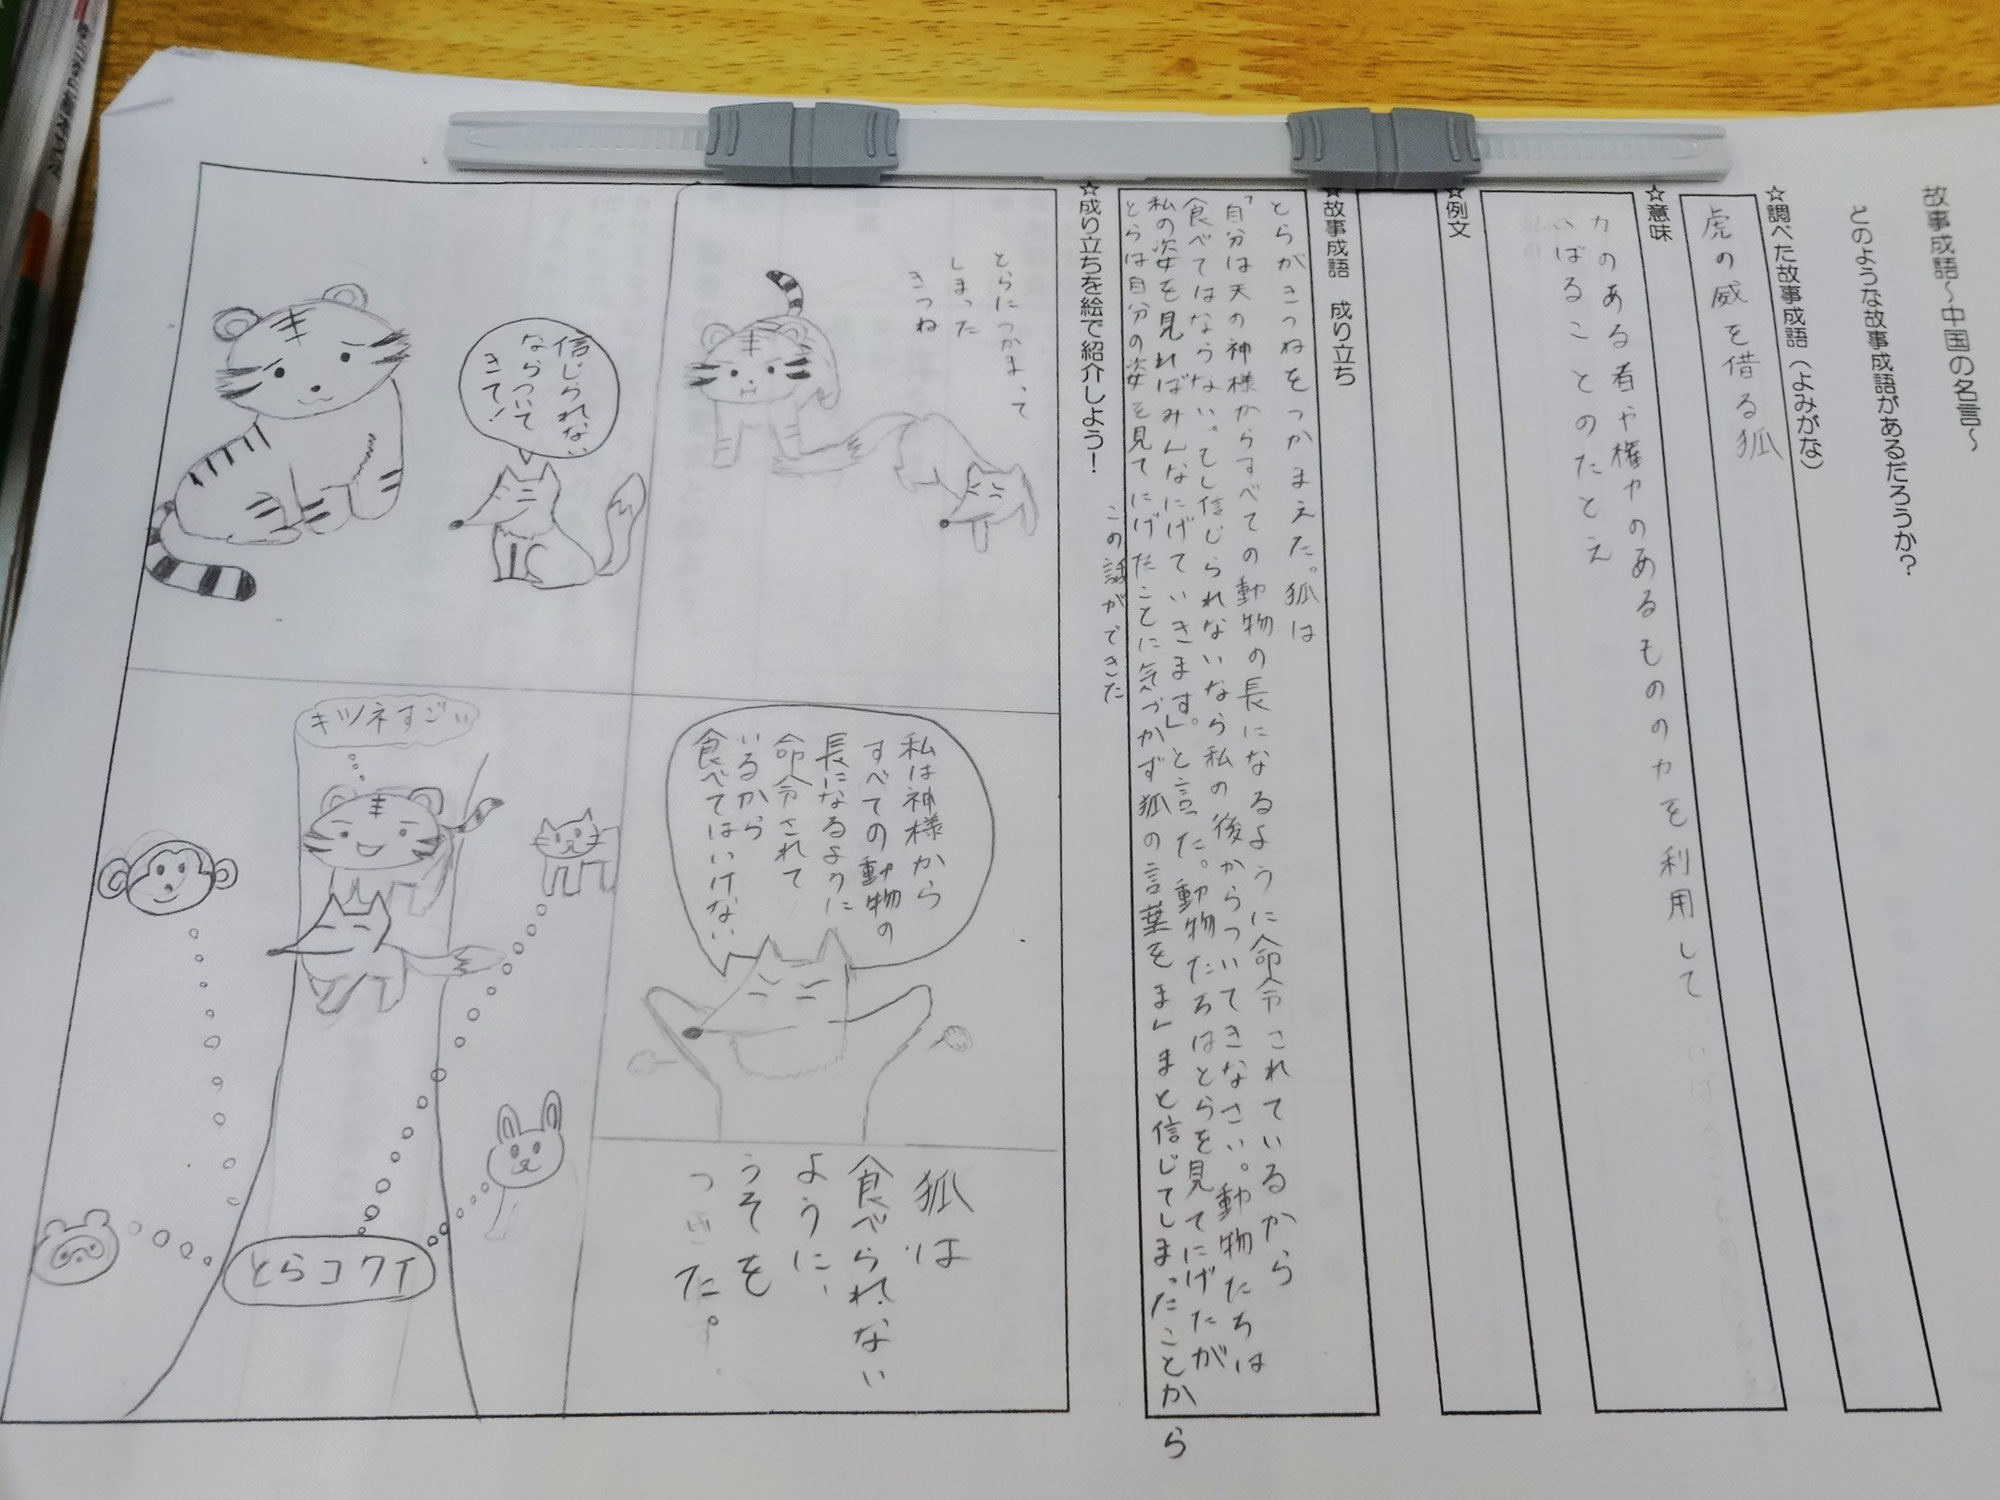 故事成語～中国の名言～
とのような故事成語があるだろうか？
☆調べた故事成語（よみがな）
虎の威を借る狐
☆意味
力のある者や権力のあるものの力を利用して
いばることのたとえ
☆例文
☆故事成語　成り立ち
とらがきつねをつかまえた。狐は
「自分は天の神様からすべての動物の長になるように命令されているから
食べてはならない。もし信じられないなら私の後からついてきなさい。動物たちは
私の姿を見ればみんなにげていきます。」と言った。動物たちはとらを見てにげたが
とらは自分の姿を見てにげたことに気づかず狐の言葉をまんまと信じてしまったことから
この話ができた
☆成り立ちを絵で紹介しよう！
とらにつかまって
しまった
きつね
私は神様から
すべての動物の
長になるように
命令されて
いるから
食べてはいけない
狐は
食べられない
ように、
うそを
った。
信じられない
ならついて
きて！
キツネすごい
とらコワイ